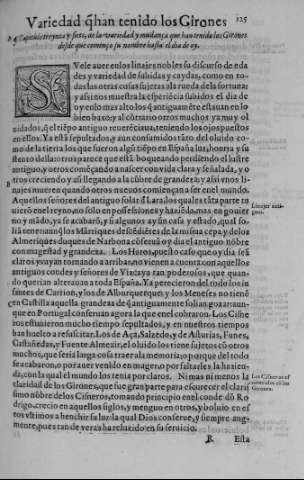 Variedad q̃han tenido los Girones 125
¶ Capitulo treynta y siete, de la variedad y mudança que han tenido los Girones
desde que començo su nombre hasta el dia de oy.
SVele auer en los linajes nobles su discurso de eda
des y variedad de subidas y caydas, como en to-
das las otras cosas sujetas a la rueda de la fortuna:
y assi nos muestra la esperiẽcia subidos el dia de
oy en lo mas alto los q̃ antiguamẽte estauan en lo
bien baxo: y al cõtrario otros muchos ya muy ol
uidados, q̃ el tiẽpo antiguo reuerẽciaua, teniendo los ojos puestos
en ellos. Ya està sepultado y aun consumido tãto del oluido co-
mo de la tierra los que fueron algũ tiẽpo en España luz, honra y su
stento della: otros parece que està boqueando perdiendo el lustre
antiguo, y otros començando a nacer con vida clara y señalada, y o
tros creciendo y assi llegando a la cũbre de grandeza: y assi vnos li
najes mueren quando otros nueuos comiençan a ser en el mundo.
Aquellos señores del antiguo solar d̃ Lara, los quales tãta parte tu
uierõ en el reyno, no solo en possessiones y hazienda, mas en gouier
no y mãdo, ya se acabarõ, y si algunos ay sin casa y estado, qual so-
lia tener
aunq̃ los Mãriques descẽdiẽtes de la misma cepa y de los
Almeriques duques de Narbona cõserua oy dia el antiguo nõbre
con magestad y grandeza. Los Haros, puesto caso que oy dia seã
claros y vayan tomando a arriba, no vienen a cuenta con aquellos
antiguos condes y señores de Vizcaya tan poderosos, que quan-
do querian alterauan a toda España. Ya perecieron del todo los in
fantes de la Cerda, y los de Alburquerque y los Meneses no tienẽ
en Castilla aquella grandeza de q̃ antiguamente solian gozar: aun-
que en Portugal conseruan agora la que en el cobraron. Los Cisne
ros estuuieron mucho tiempo sepultados, y en nuestros tiempos
han buelto a resuscitar. Los de Aça, Salzedo, y de Asturias, Funes,
Castañedas, y Fuente Almexir, el oluido los tiene sujetos cõ otros
muchos, que seria larga cosa traer a la memoria; porque del todo
se acabaron, o por auer venido en magro, o por faltarles la hazien-
da, con la qual el mundo los tenia por claros. Ni mas ni menos la
claridad de los Girones, que fue gran parte para escurecer el claris
simo nõbre de los Cisneros, tomando principio en el conde dõ Ro
drigo, crecio en aquellos siglos, y menguo en otros, y boluio en es
tos vltimos a henchir su luz: la qual Dios conserue, y siempre aug-
mente, pues tan de veras ha reluzido en su seruicio.
R Esta
B
Linajes anti-
guos.
Los Cisneros es
curecidos cõ los
Girones.